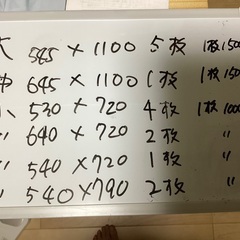 大 585 × 1100 5枚 1枚1500
中 645 × 1100 1枚 1枚150
小 530 × 720 4枚 1枚1000
〃 640 × 720 2枚 〃
〃 540 × 720 1枚 〃
〃 540 × 790 2枚 〃